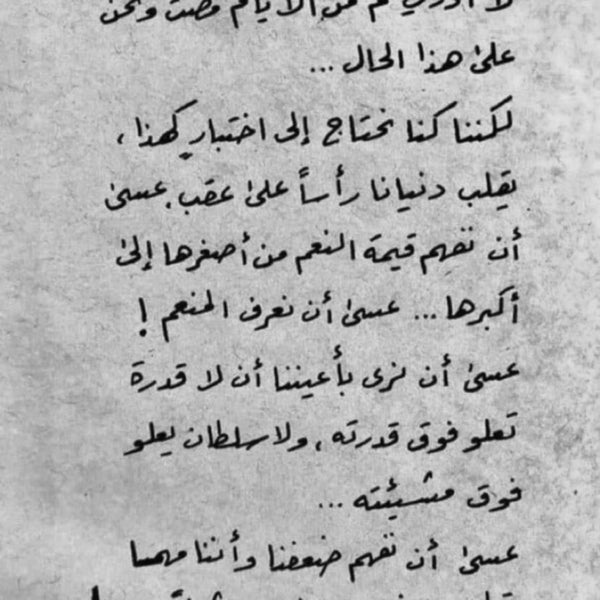 لا أدري كم من الأيام مضت ونحن
على هذا الحال ...
لكننا كنا نحتاج إلى اختبارٍ كهذا،
يقلب دنيانا رأساً على عقب، عسى
أن نفهم قيمة النعم من أصغرها إلى
أكبرها ... عسى أن نعرف المنعم !
عسى أن نرى بأعيننا أن لا قدرة
تعلو فوق قدرته، ولا سلطان يعلو
فوق مشيئته ...
عسى أن نفهم ضعفنا وأننا مهما